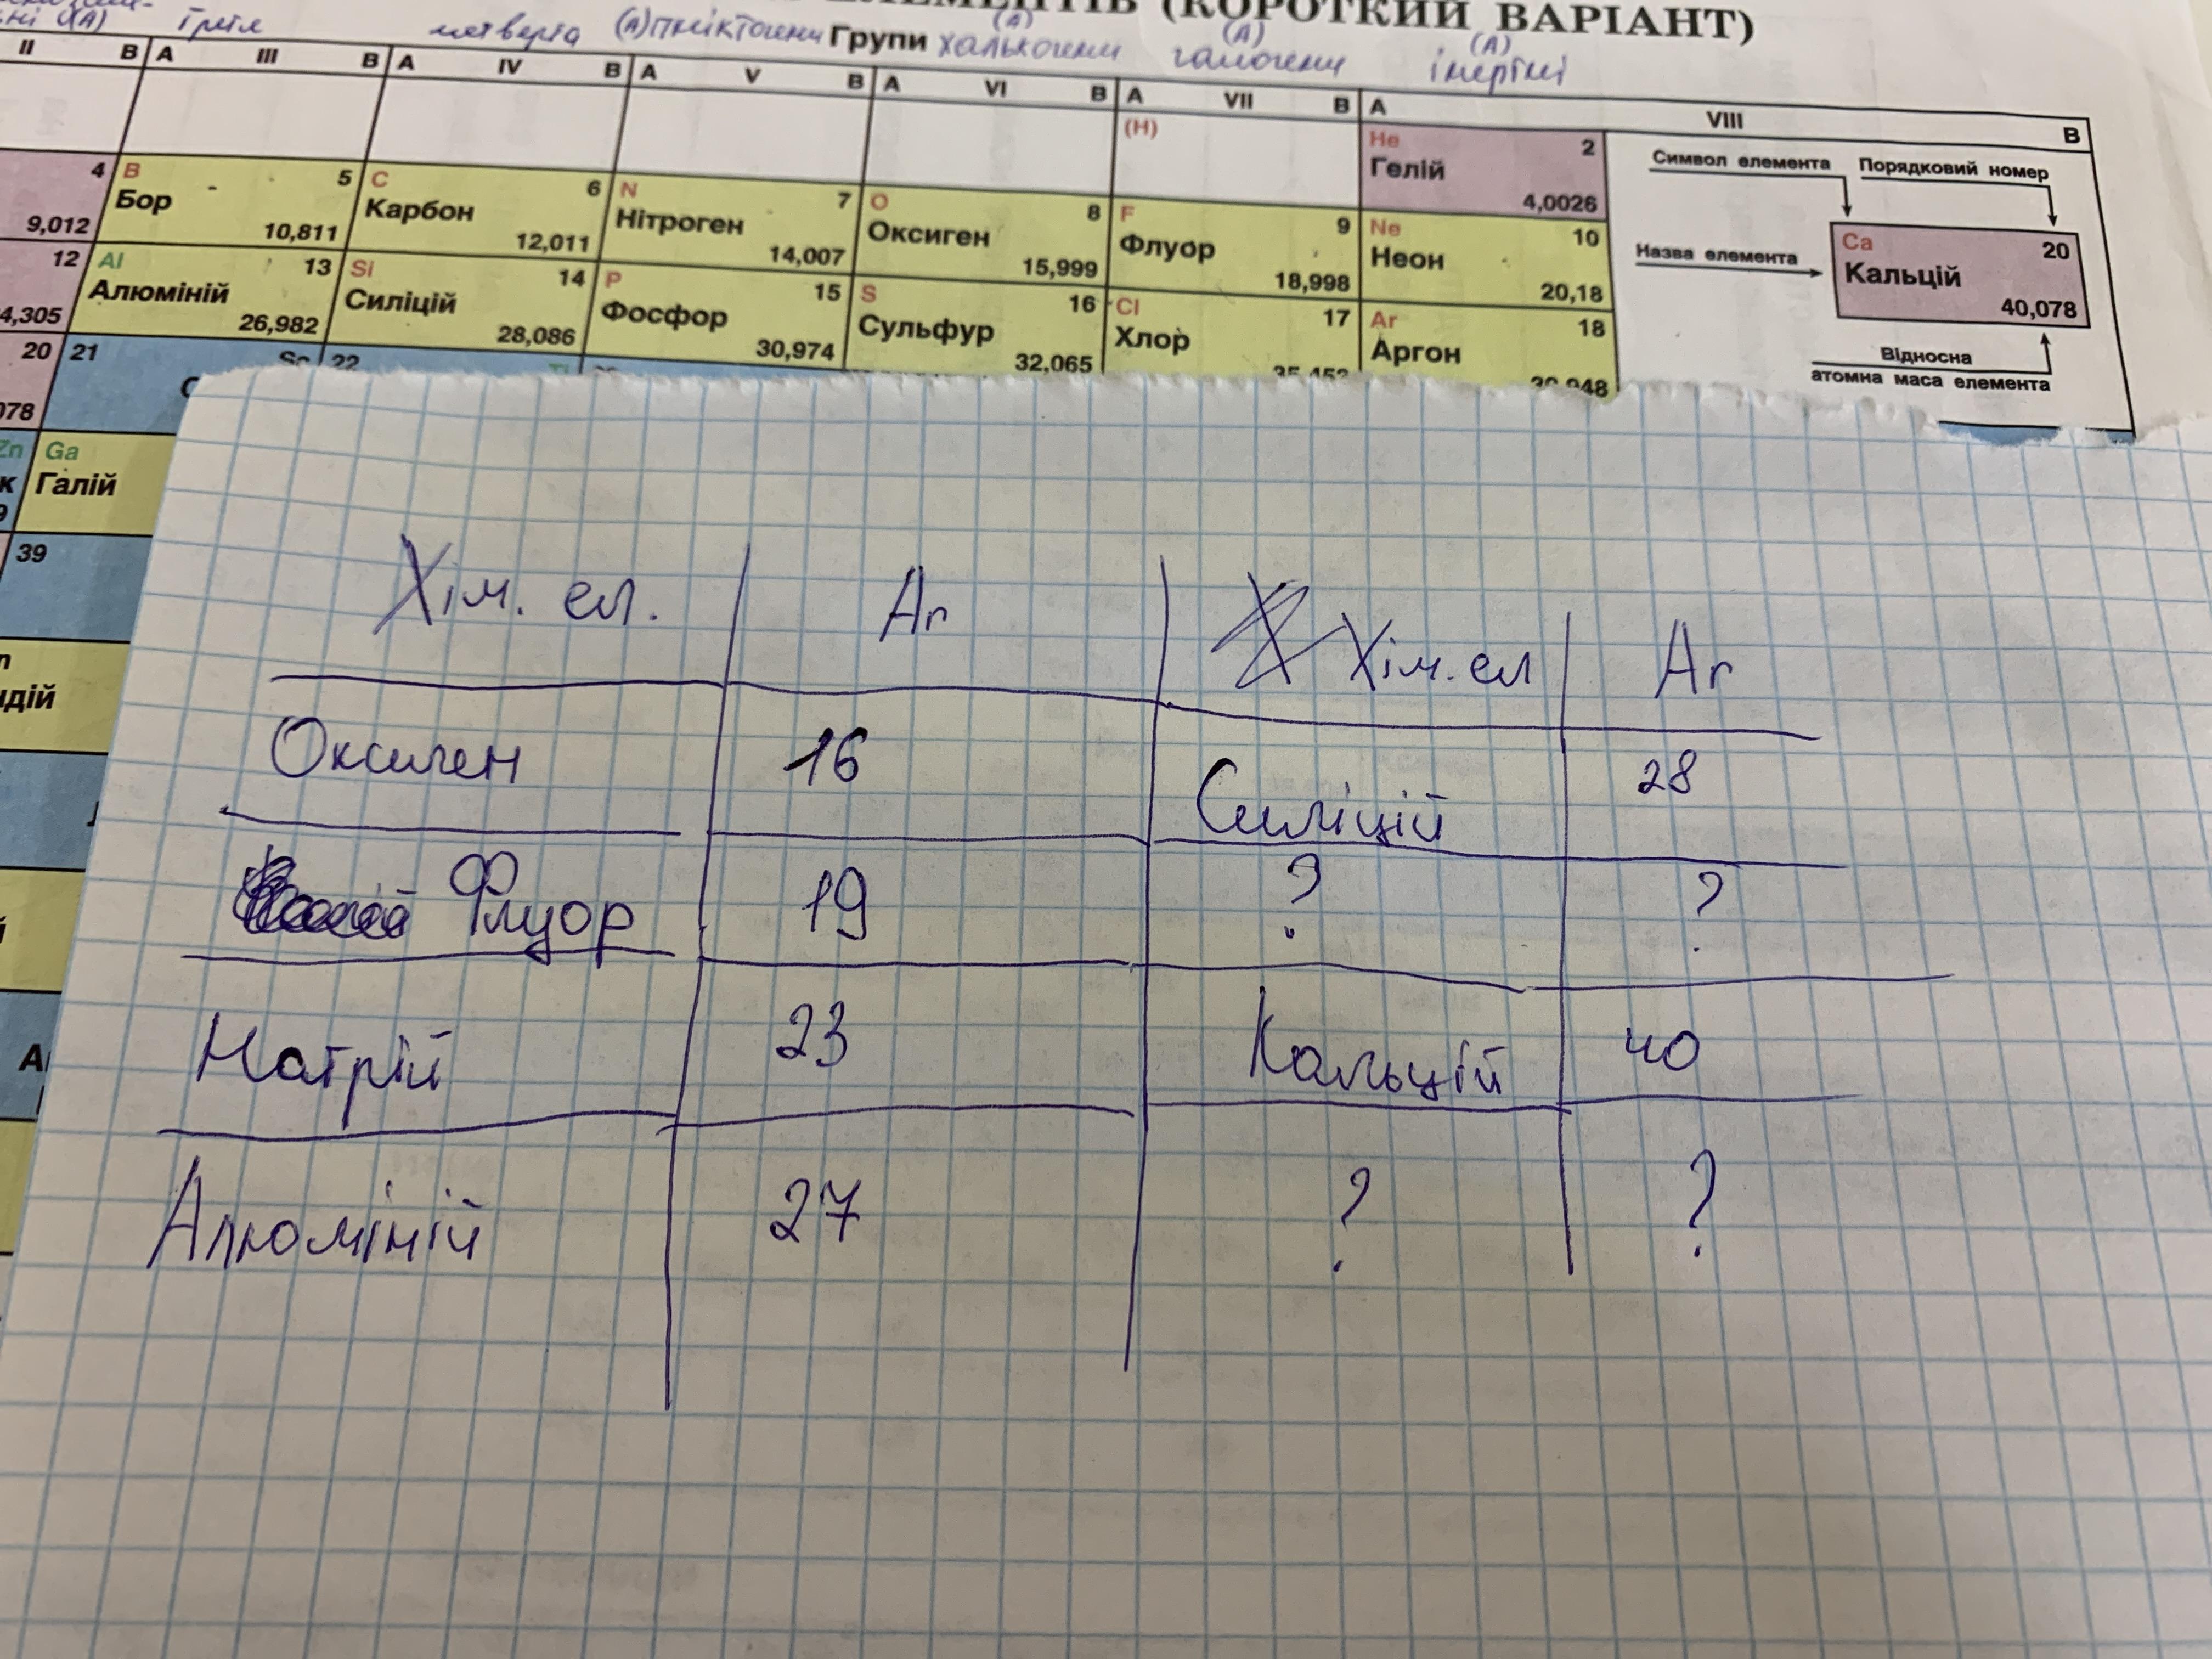 (КОРОТКИЙ ВАРІАНТ)
четверта (А) пніктогени Групи халькогени (А) галогени (А) інертні (А)
II B A III B A IV B A V B A VI B A VII B A VIII B
(H) He 2
Гелій
4,0026
Символ елемента Порядковий номер
Ca 20
Назва елемента Кальцій
40,078
Відносна
атомна маса елемента
4 B 5 C 6 N 7 O 8 F 9 Ne 10
Бор Карбон Нітроген Оксиген Флуор Неон
9,012 10,811 12,011 14,007 15,999 18,998 20,18
12 Al 13 Si 14 P 15 S 16 Cl 17 Ar 18
Алюміній Силіцій Фосфор Сульфур Хлор Аргон
4,305 26,982 28,086 30,974 32,065
20 21 Sc 22
078
Zn Ga
Галій
39
дій
Хім. ел. Ar Хім. ел Ar
Оксиген 16 Силіцій 28
Флуор 19 ? ?
Натрій 23 Кальцій 40
Алюміній 27 ? ?